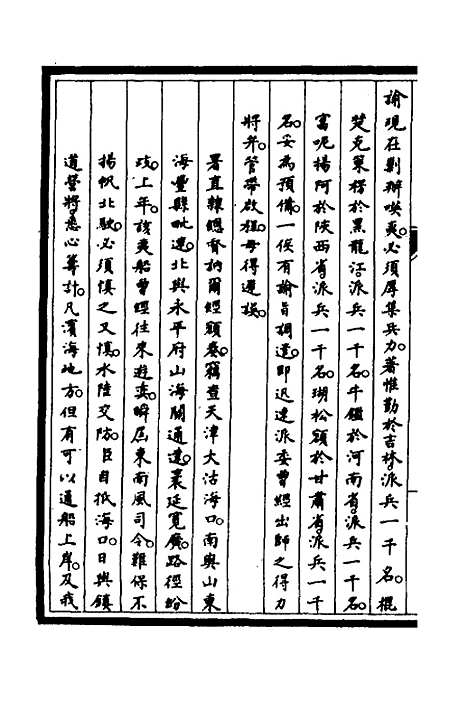 諭現在剿辦暎夷。必須厚集兵力。著惟勤於吉林。派兵一千名。棍
楚克策楞於黑龍江。派兵一千名。牛鑑於河南省。派兵一千名。
富呢揚阿於陝西省。派兵一千名。瑚松額於甘肅省。派兵一千
名。妥為預備。一俟有諭旨調遣。即迅速派委曾經出師之得力
將弁。管帶啟程。毋得遲誤。
署直隸總督訥爾經額奏。竊查天津大沽海口。南與山東
海豐縣毗連。北與永平府山海關通達。袤延寬廣。路徑紛
歧。上年。該夷船曾經往來遊奕。瞬屆東南風司令。難保不
揚帆北駛。必須慎之又慎。水陸交防。臣自抵海口。日與鎮
道營將。悉心籌計。凡濱海地方。但有可以通船上岸。及我